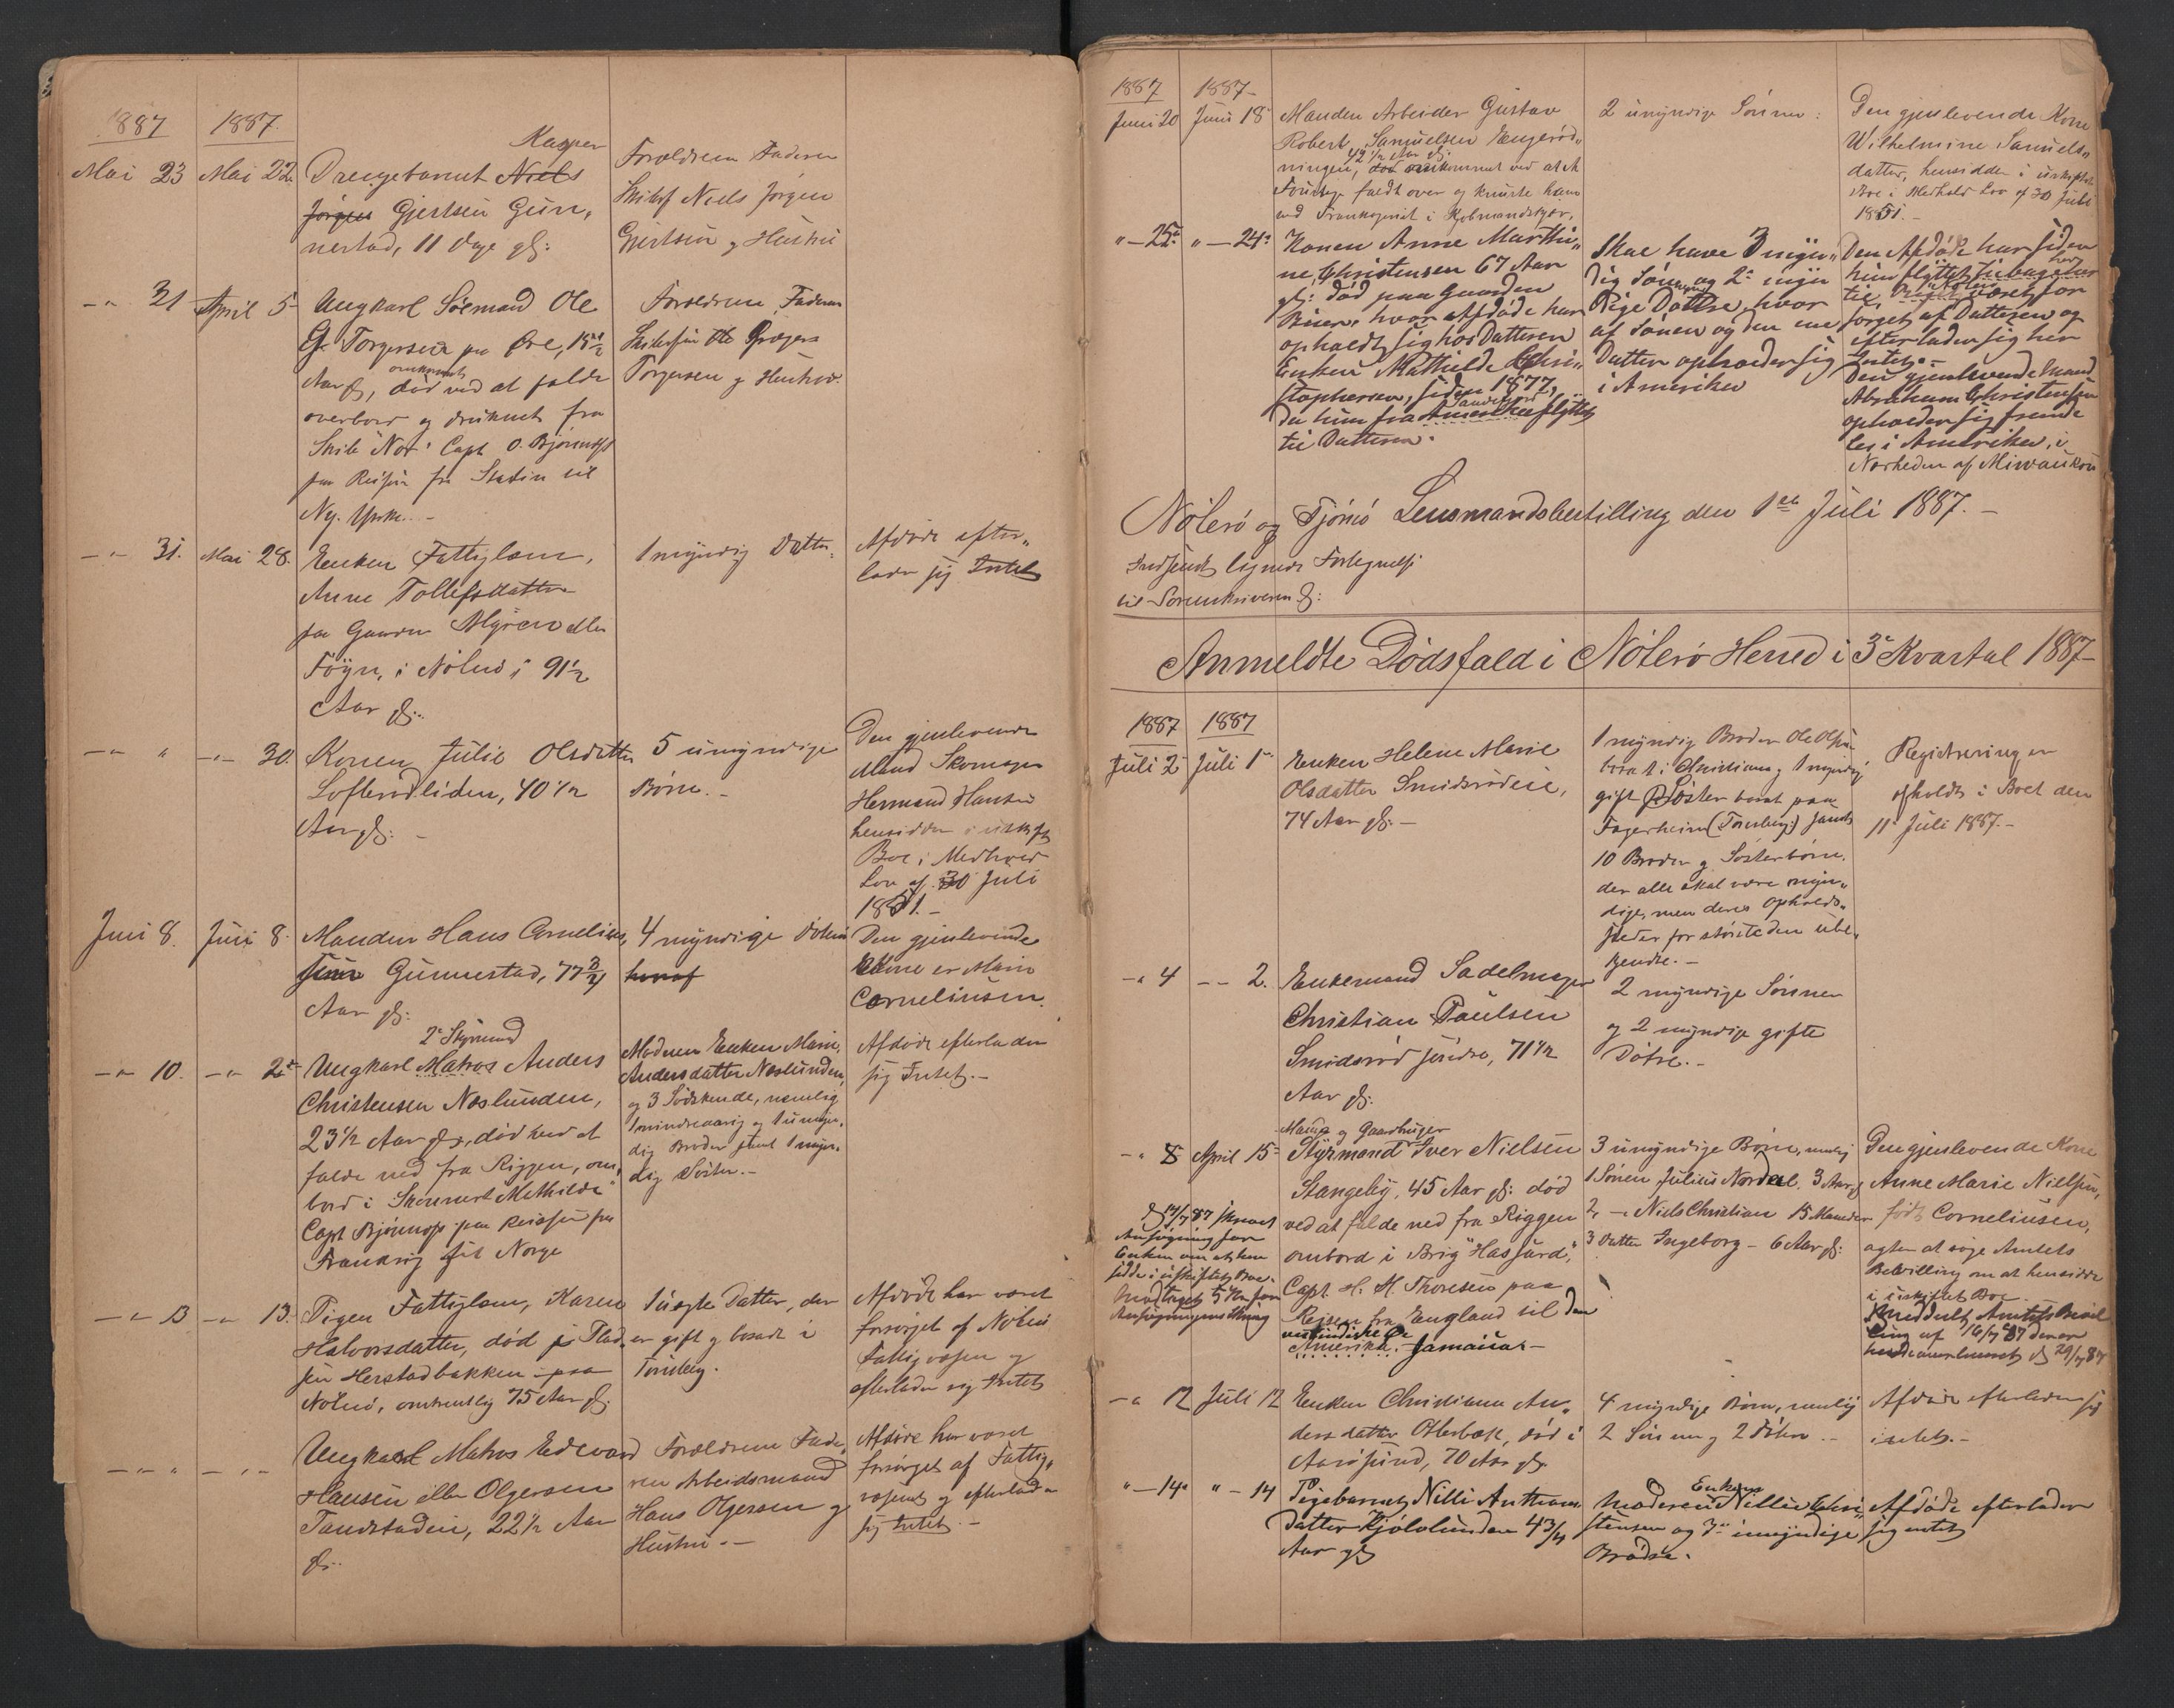 1887 1887.
Mai 23 Mai 22. Drengebarnet Niels Kasper
Jørgen Gjertsen Gun„
nestad, 11 Dage gl:
Forældrene Faderen
Skibsf Niels Jørgen
Gjertsen og Hustru
— „ 31 April 5 Ungkarl Sømand Ole
G. Torgersen paa Øre, 18 1/2
Aar gl, omkommet
død ved at falde
overbord og druknet fra
Skib "Nor" Capt O. Bjønness
paa Reisen fra Stetin til
Ny. York. —
Forældrene, Faderen
Skibsfører Ole Grøger
Torgersen og Hustru.
— „ 31. Mai 28. Enken Fattiglem,
Anne Tollefsdatter
paa Gaarden Myren eller
Føyn, i Nøterø, 91 1/2
Aar gl:.
1 myndig Datter.
Afdøde efter„
lader sig Intet
— „ „ — „ — 30. Konen Julie Olsdatter
Lofterødliden, 40 1/2
Aar gl: —
5 umyndige
Børn. —
Den gjenlevende
Mand Skomager
Hermand Hansen
hensidder i uskiftet
Boe i Medhold
Lov af 30 Juli
1851. —
Juni 8. Juni 8. Manden Hans Cornelius„
sen Gunnestad, 77 3/4
Aar gl:
4 myndige Døtre
hvoraf
Den gjenlevende
Kone er Maren
Corneliusen.
— „ 10. — „ 2 Ungkarl Matros Anders
2den Styrmand
Christensen Næslunden,
23 1/2 Aar gl:, død ved at
falde ned fra Riggen, om„
bord i Skonnert "Mathilde"
Capt Bjønness paa Reisen fra
Frankrig til Norge
Moderen Enken Maren
Andersdatter Næslunden,
og 3 Sødskende, nemlig
1 mindreaarig og 1 umyn„
dig Broder samt 1 myn„
dig Søster. —
Afdøde efterlader
sig Intet. —
— „ 13 — „ 13. Pigen Fattiglem, Karen
Halvorsdatter, død p Plad„
sen Herstadbakken paa
Nøterø, omtrentlig 75 Aar gl.
1 uægte Datter, der
er gift og bosadt i
Tønsberg.
Afdøde har været
forsørget af Nøterø
Fattigvæsen og
efterlader sig Intet
— „ — „ — „ — Ungkarl Matros Edvard
Hansen eller Olgersen
Tandstadeie, 22 1/2 Aar
gl:.
Forældrene Fade„
ren Arbeidsmand
Hans Olgersen og
Hustru. —
Afdøde har været
forsørget af Fattig„
væsenet og efterlader
sig Intet. —
1887 1887 —
Juni 20 Juni 18 Manden Arbeider Gustav
Robert Samuelsen Engerød„
ningen, 42 1/2 Aar gl:
død omkommet ved at et
faldt over og knuste ham
ved i Kjøbmandskjær,
2 umyndige Sønner.
Den gjenlevende Kone
Wilhelmine Samuels„
datter, hensidder i uskiftet
Boe i Medhold Lov af 30 Juli
1851. —
„ — 25 „ — 24 Konen Anne Marthi„
ne Christensen 67 Aar
gl: død paa Gaarden
Buer, hvor afdøde har
opholdt sig hos Datteren
Enken Mathilde Chri„
stophersen, siden 1877,
da hun fra Amerika flyttet
Sandefjord
til Datteren.
Skal have 3 myn„
dig Sønner og 2 myn
dige Døttre, hvor
af Sønen og den ene
Datter opholder sig
i Amerika
Den Afdøde har siden
hun flyttet tilbage her
til Nøterø været for
sørget af Datteren og
efterlader sig her
Intet. —
Den gjenlevende Mand
Abraham Christensen
opholder sig fremde
les i Amerika, i
Nærheden af Miwaukou
Nøterø og Tjømø Lensmandsbestilling den 1ste Juli 1887. —
Indsendt lignende Fortegnelse
til Sorenskriveren gl:
Anmeldte Dødsfald i Nøterø Herred i 3 Kvartal 1887 —
1887 1887
Juli 2 Juli 1 Enken Helene Marie
Olsdatter Smidsrødeie,
74 Aar gl: —
1 myndig Broder Ole Olsen
bosat i Christiania og 1 myndig
gift Søster bosat paa
Fagerheim (Tønsberg) samt
10 Broder og Søsterbørn,
der alle skal være myn„
dige, men deres Opholds„
steder for største den ube„
kjendte. —
Registrering er
afholdt i Boet den
11 Juli 1887. —
— „ 4 — — 2. Enkemand Sadelmager
Christian Paulsen
Smidsrød søndre, 71 1/2
Aar gl:
2 myndige Sønner
og 2 myndige gifte
Døtre. —
— „ 8 April 15 Mand og Gaardbruger
Styrmand Iver Nielsen
Stangeby, 45 Aar gl: død
ved at falde ned fra Riggen
ombord i Brig "Hassurd",
Capt. H. H. Thoresen paa
Reisen fra England til den
vestindiske Ø
Amerika. Jamaica —
3 umyndige Børn, nemlig
1 Sønen Julius Nordal. 3 Aar gl
2 — „ Niels Christian 15 Maneder
3 Datter Ingeborg — 6 Aar gl:
Den gjenlevende Kone
Anne Marie Nielsen,
født Corneliusen,
agter at søge Amtets
Bevilling om at hensidde
i uskiftet Boe.
Meddelt Amtets Bevil
ling af 16/7 87 denne
29/7 87
12/7 87 skrevet
Ansøgning for
Enken om at hen
sidde i uskiftet Boe.
Modtaget 5 Kr for
Ansøgningens
— „ 12 Juli 12 Enken Christiane An„
dersdatter Oterbæk, død i
Aarøsund, 70 Aar gl:
4 myndige Børn, nemlig
2 Sønner og 2 Døtre. —
Afdøde efterlader sig
intet. —
„ — 14 „ — 14 Pigebarnet Nilli Antham
datter Kjølolunden 4 3/4
Aar gl
Moderen Enken Nillie Chri„
stensen og 3 umyndige
Brødre.
Afdøde efterlader
sig intet